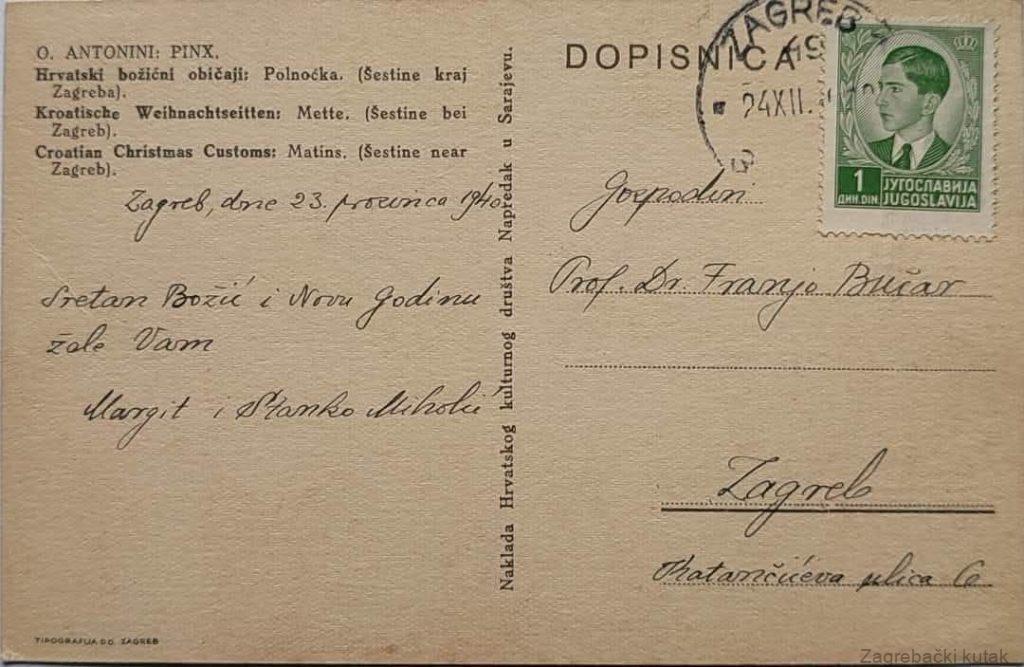 O. ANTONINI: PINX.
Hrvatski božićni običaji: Polnoćka. (Šestine kraj
Zagreba).
Kroatische Weihnachtseitten: Mette. (Šestine bei
Zagreb).
Croatian Christmas Customs: Matins. (Šestine near
Zagreb).
Zagreb, dne 23. prosinca 1940
Sretan Božić i Novu Godinu
žele Vam
Margit i Stanko Miholić
TIPOGRAFIJA D.D. ZAGREB
Naklada Hrvatskog kulturnog društva Napredak u Sarajevu.
DOPISNICA
ZAGREB
24 XII.
1
ДИН. DIN
ЈУГОСЛАВИЈА
JUGOSLAVIJA
Gospodin
Prof. Dr. Franjo Bučar
Zagreb
Katančićeva ulica 6
Zagrebački kutak